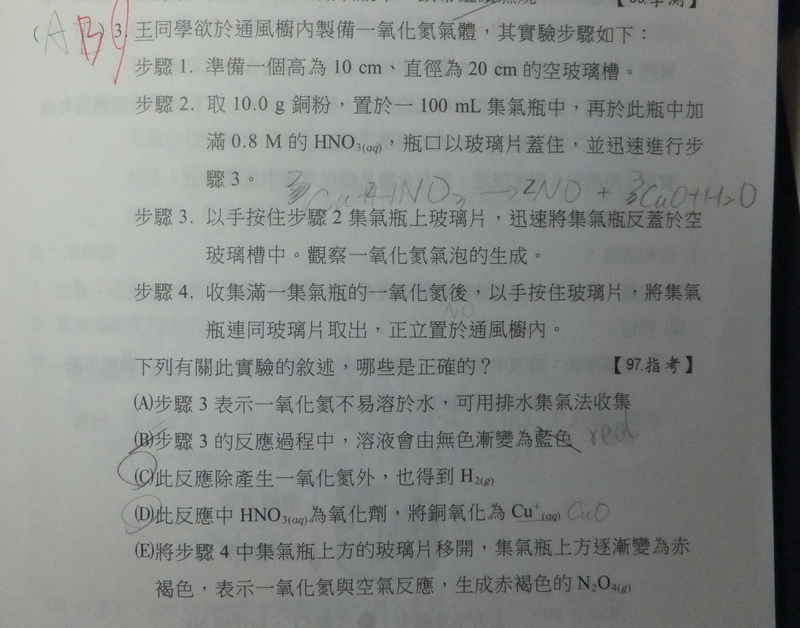 【95.學測】
(A B) 3. 王同學欲於通風櫥內製備一氧化氮氣體，其實驗步驟如下：
步驟 1. 準備一個高為 10 cm、直徑為 20 cm 的空玻璃槽。
步驟 2. 取 10.0 g 銅粉，置於一 100 mL 集氣瓶中，再於此瓶中加
滿 0.8 M 的 HNO3(aq)，瓶口以玻璃片蓋住，並迅速進行步
驟 3。
3Cu+2HNO3 → 2NO + 3CuO+H2O
步驟 3. 以手按住步驟 2 集氣瓶上玻璃片，迅速將集氣瓶反蓋於空
玻璃槽中。觀察一氧化氮氣泡的生成。
步驟 4. 收集滿一集氣瓶的一氧化氮後，以手按住玻璃片，將集氣
NO
瓶連同玻璃片取出，正立置於通風櫥內。
下列有關此實驗的敘述，哪些是正確的？ 【97.指考】
(A)步驟 3 表示一氧化氮不易溶於水，可用排水集氣法收集
(B)步驟 3 的反應過程中，溶液會由無色漸變為藍色 red
(C)此反應除產生一氧化氮外，也得到 H2(g)
(D)此反應中 HNO3(aq)為氧化劑，將銅氧化為 Cu+(aq) CuO
(E)將步驟 4 中集氣瓶上方的玻璃片移開，集氣瓶上方逐漸變為赤
褐色，表示一氧化氮與空氣反應，生成赤褐色的 N2O4(g)